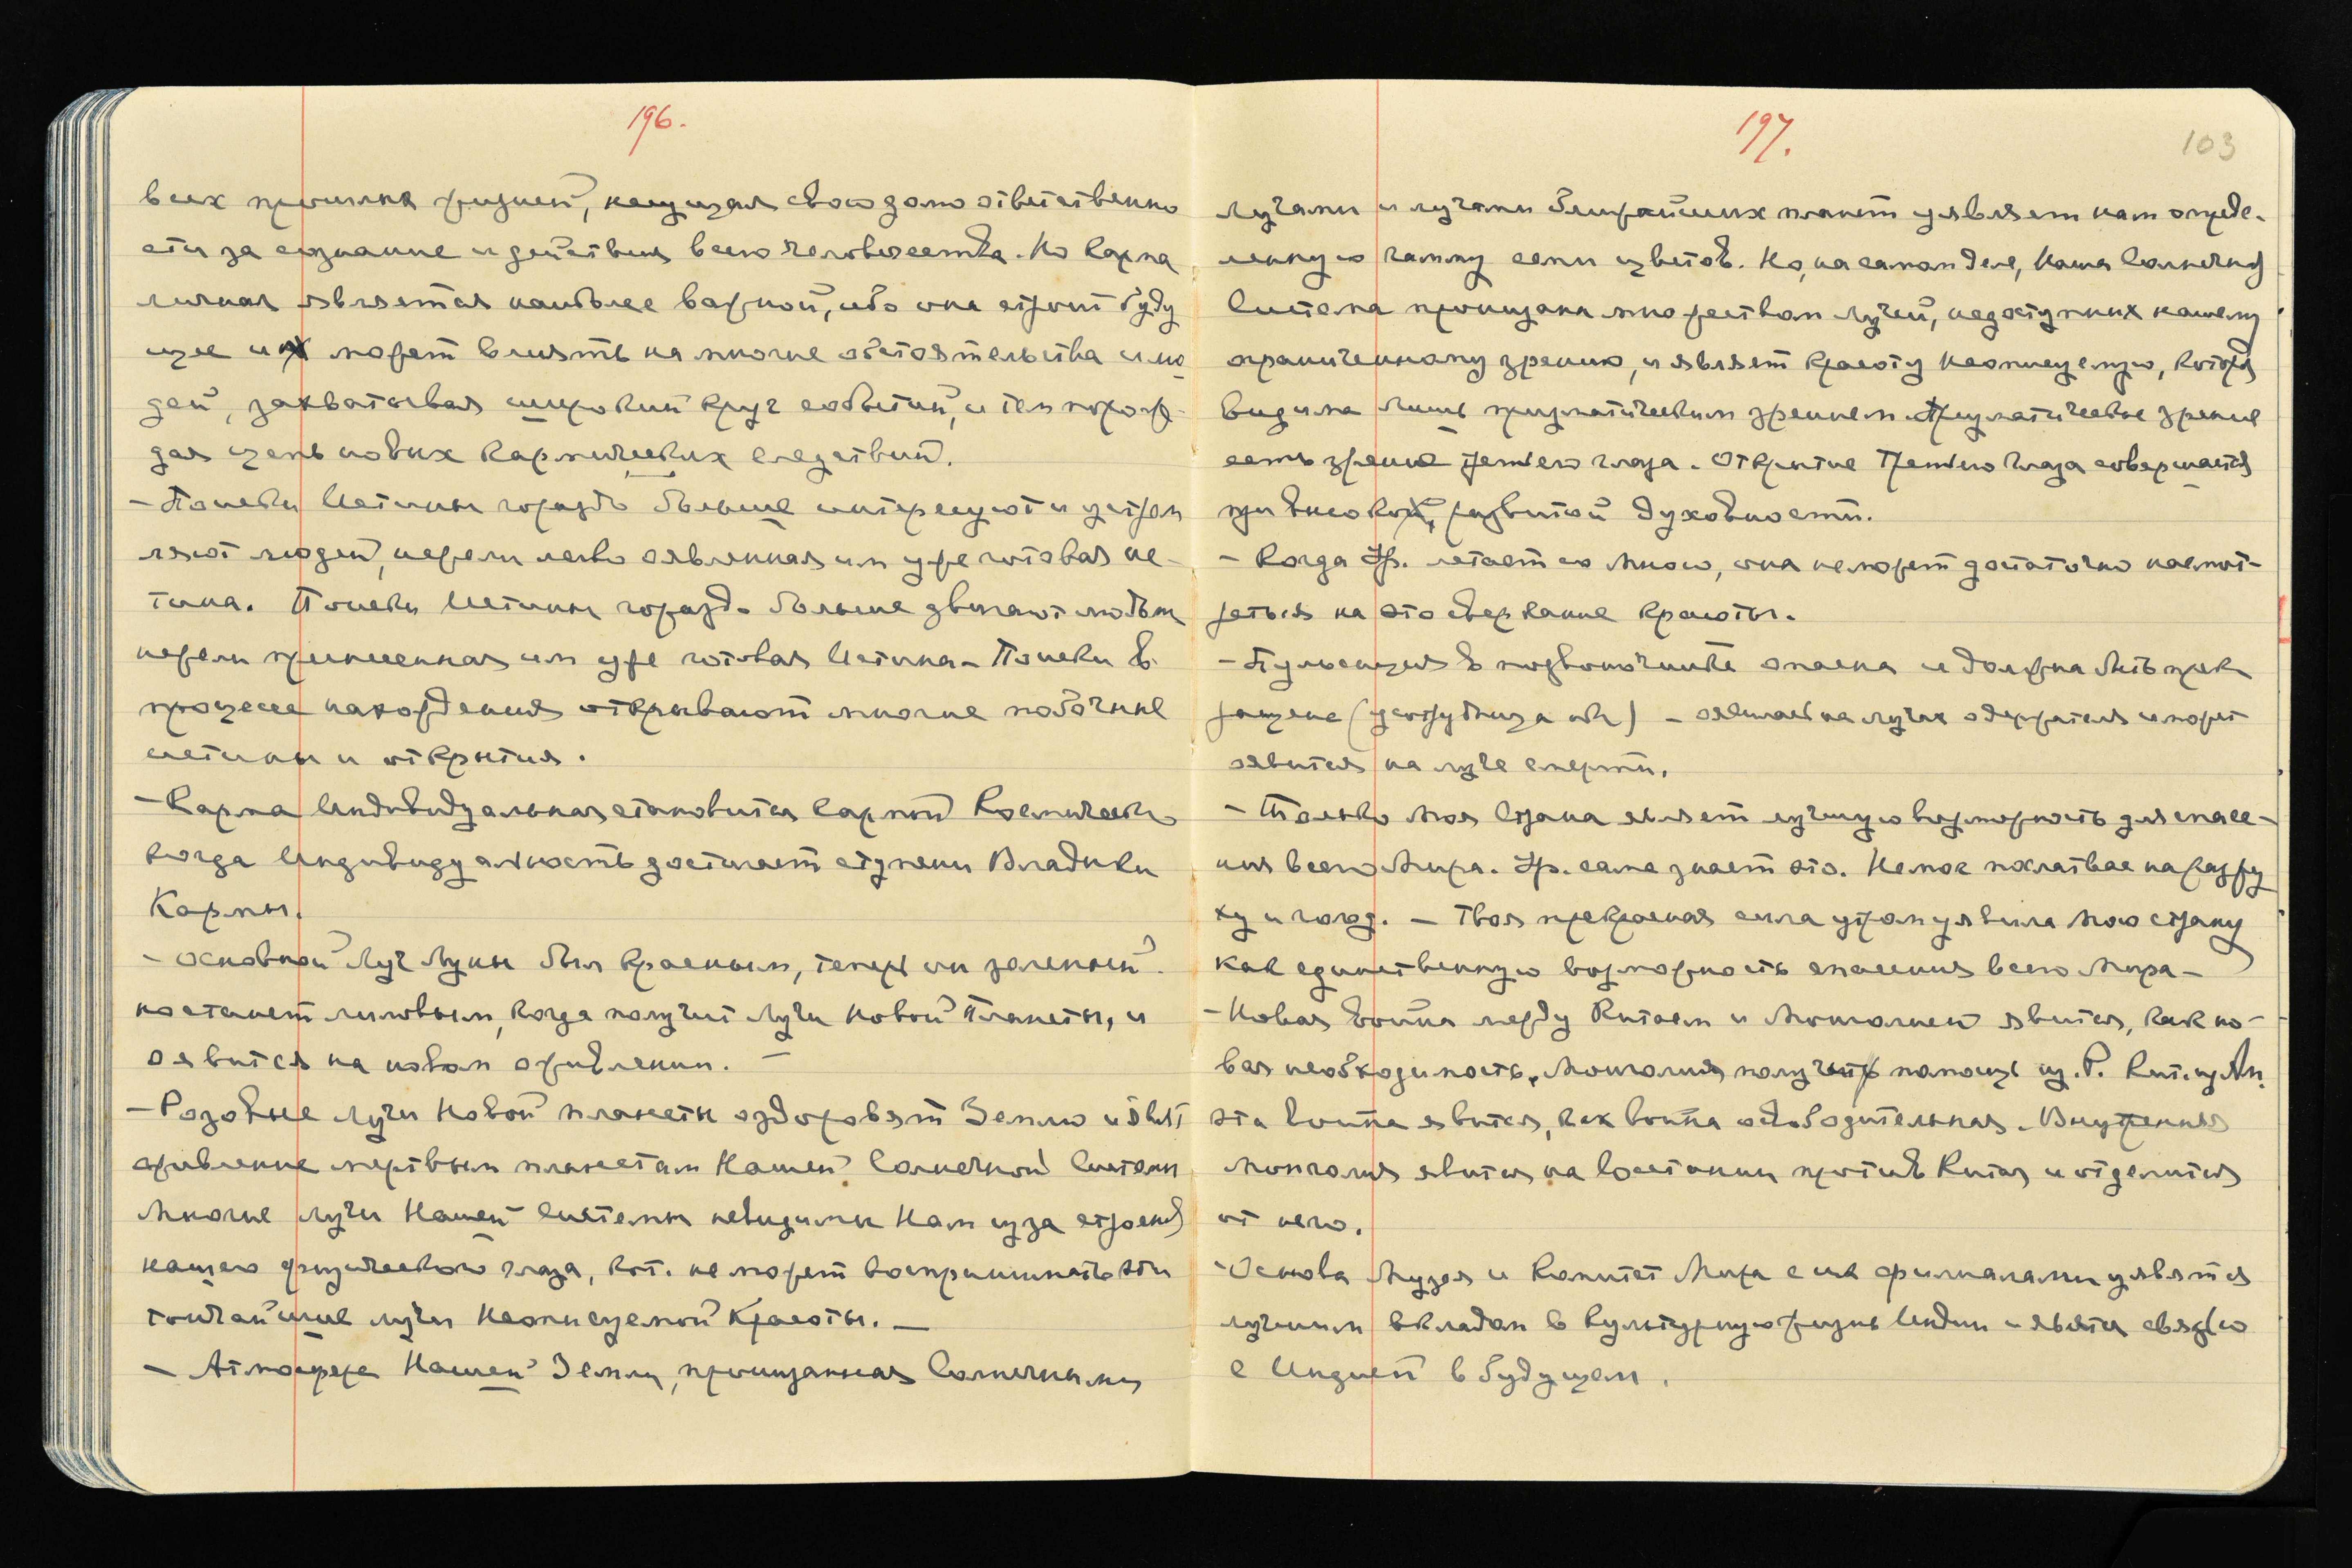 196.
всех прошлых жизней, несущая свою долю ответственно
сти за сознание и действия всего человечества. Но карма
личная является наиболее важной, ибо она строит буду
щее и может влиять на многие обстоятельства и лю
дей, захватывая широкий круг событий, и тем порож-
дая цепь новых кармических следствий.
- Поиски Истины гораздо больше интересуют и устрем
ляют людей, нежели легко явленная им уже готовая ис-
тина. Поиски Истины гораздо больше двигают людьми
нежели принесенная им уже готовая Истина - Поиски в
процессе нахождения открывают многие побочные
истины и открытия.
- Карма Индивидуальная становится Кармой Космической
когда Индивидуальность достигает ступени Владыки
Кармы.
- Основной Луч Луны был красным, теперь он зеленый.
но станет лиловым, когда получит Лучи Новой Планеты, и
оявится на новом оживлении. -
- Розовые лучи Новой планеты оздоровят Землю и явят
оживление мертвым планетам Нашей Солнечной Системы
Многие лучи Нашей системы невидимы Нам из за строения
нашего физического глаза, кот. не может воспринимать эти
тончайшие лучи Неописуемой Красоты. -
- Атмосфера Нашей Земли, пронизанная Солнечными
197.
103
лучами и лучами ближайших планет уявляет нам опреде-
ленную гамму семи цветов. Но, на самом деле, Наша Солнечная
Система пронизана множеством лучей, недоступных нашему
ограниченному зрению, и являет красоту неописуемую, которая
видима лишь призматическим зрением. Призматическое зрение
есть зрение третьего глаза. Открытие Третьего Глаза совершается
при высокой, развитой духовности.
- Когда Ур. летает со Мною, она не может достаточно насмот-
реться на это сверкание красоты.
- Пульсация в позвоночнике опасна и должна быть прек
ращена - оявилась на лучах одержателя и может
оявиться на луче смерти.
- Только Моя Страна являет лучшую возможность для спасе-
ния всего Мира. Ур. сама знает это. Не мог на разру
ху и голод. - Твоя прекрасная сила утром уявила Мою страну
как единственную возможность спасения всего Мира -
- Новая война между Китаем и Монголией явится, как но-
вая необходимость. Монголия получит помощь из.
эта Война явится, как война освободительная. Внутренняя
Монголия явится на восстании против Китая и отделится
от него.
- Основа Музея и Комитет Мира с их филиалами уявятся
лучшим вкладом в культурную жизнь Индии и явятся связью
с Индией в будущем.